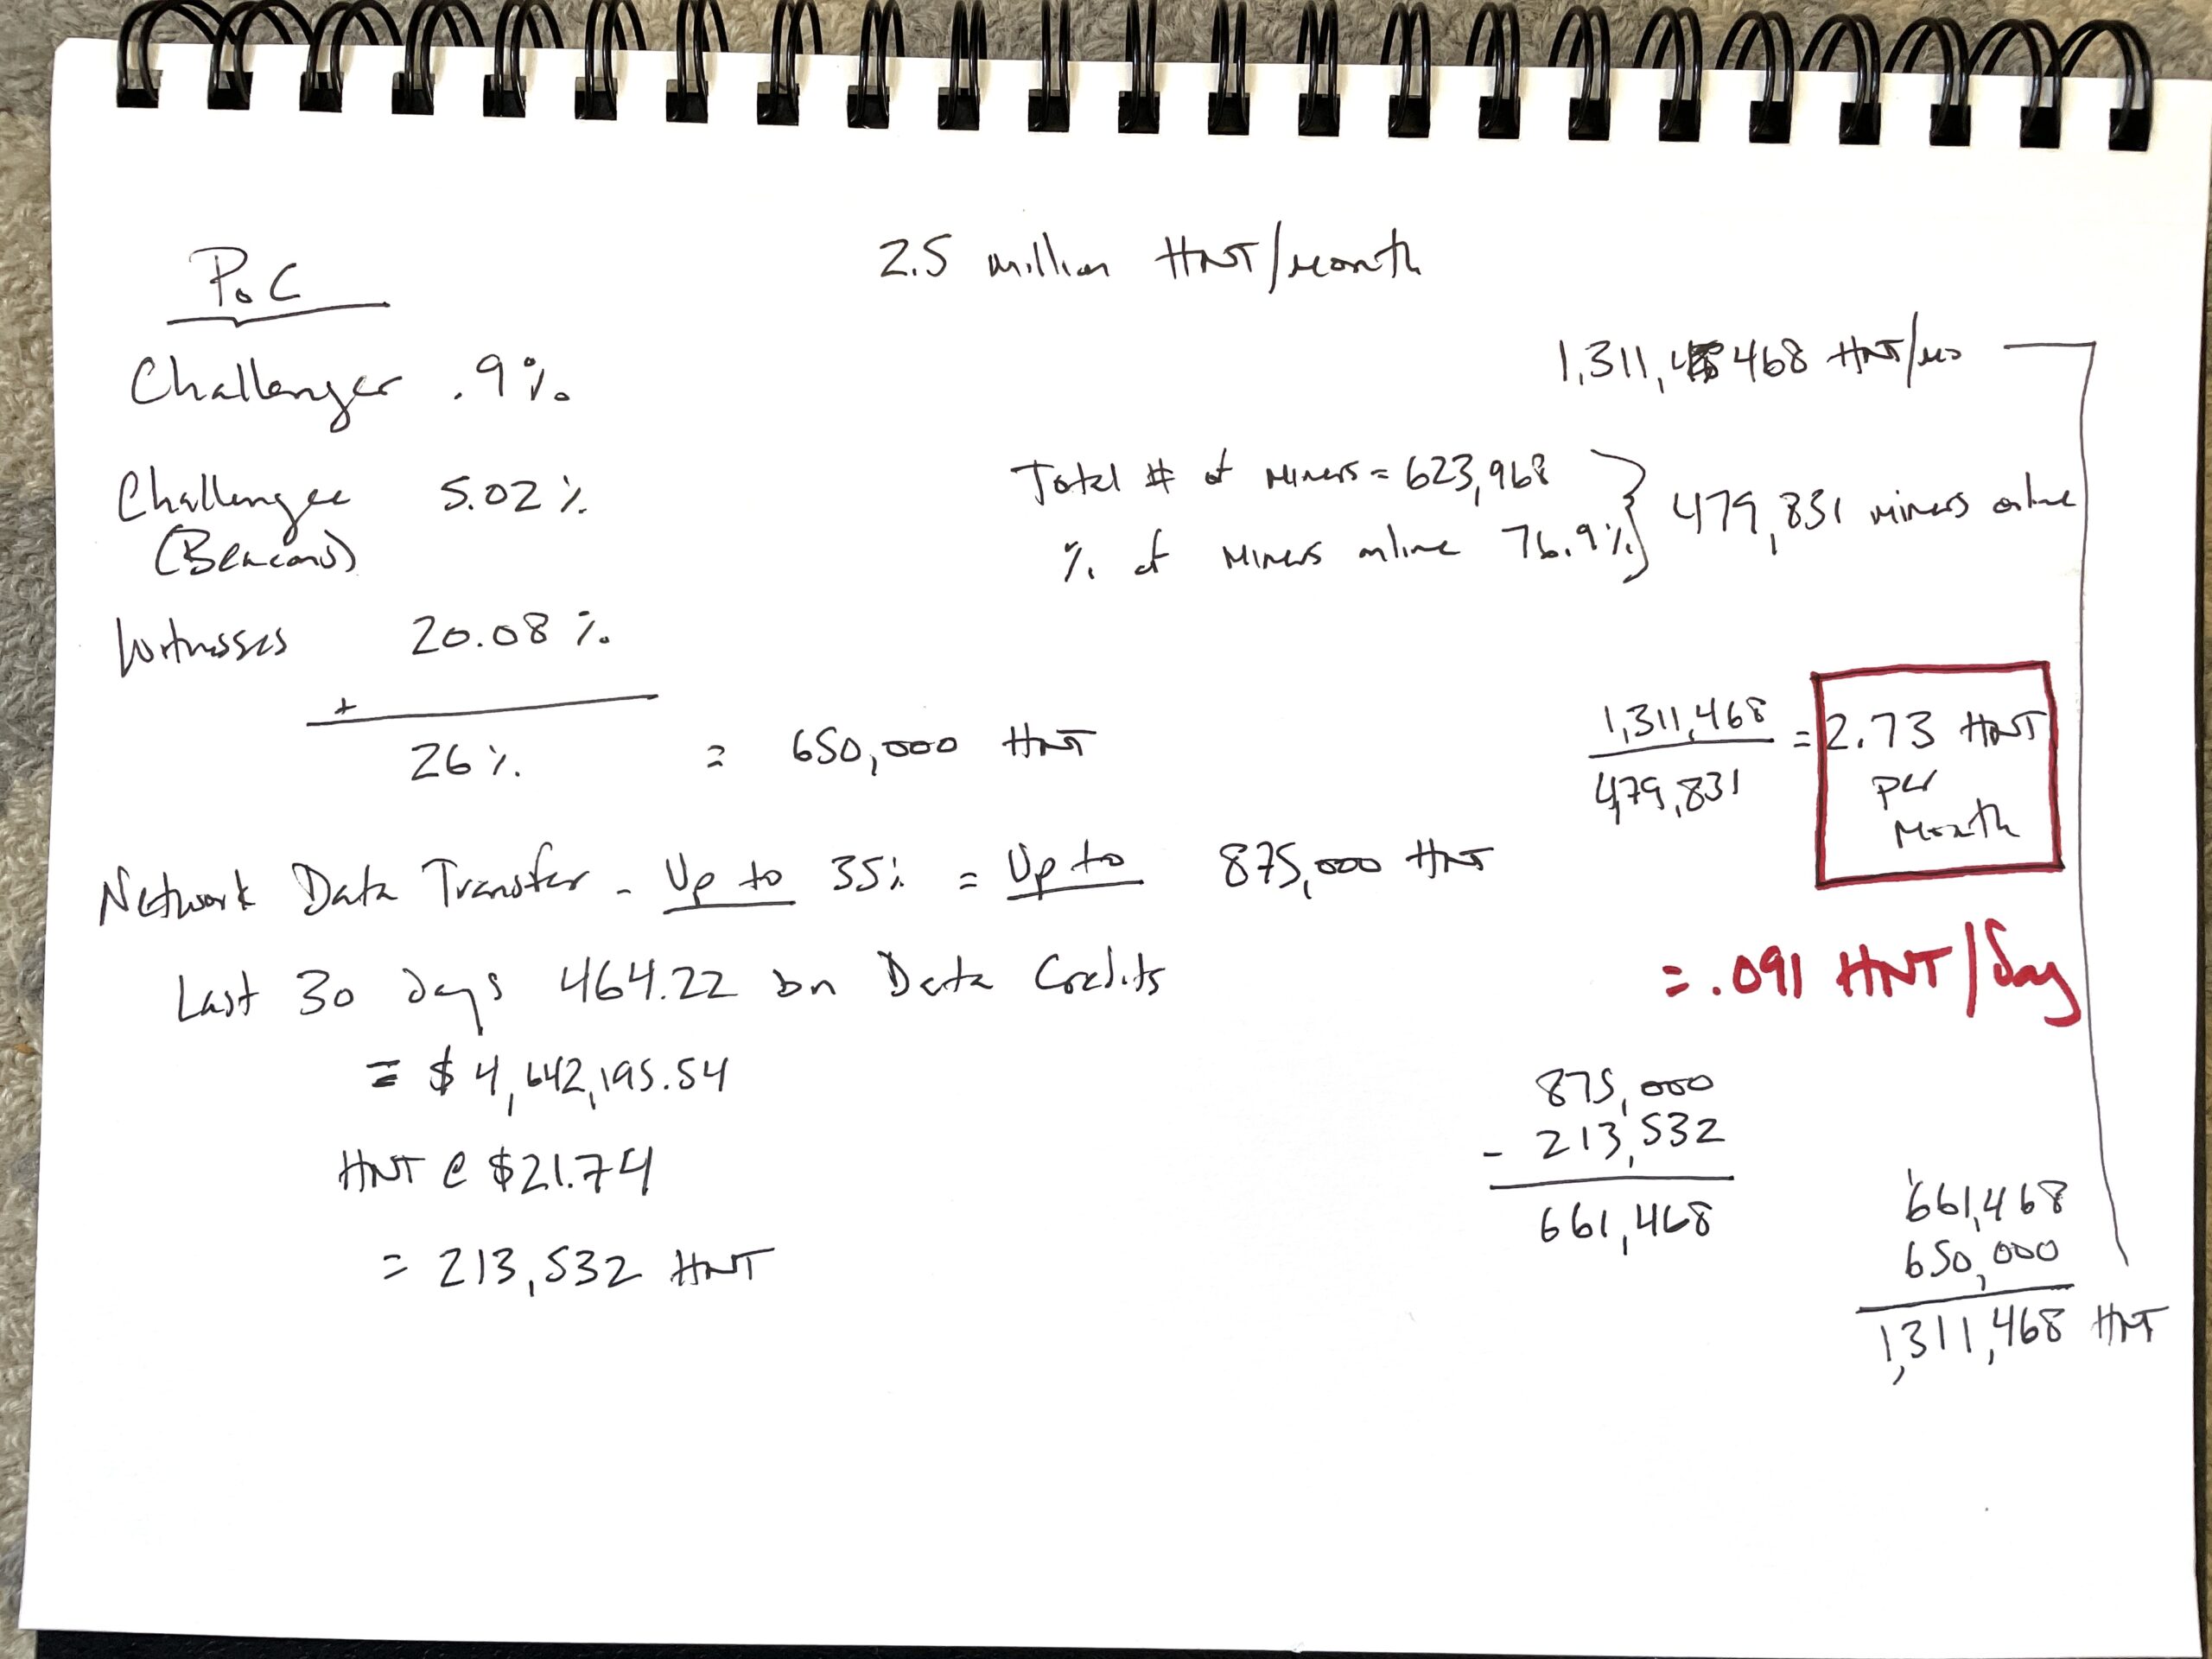 2.5 million HNT/month
PoC
Challenger .9%
Challengee 5.02%
(Beacons)
Witnesses 20.08%
+
26% = 650,000 HNT
Network Data Transfer - Up to 35% = Up to 875,000 HNT
Last 30 days 464.22 bn Data Credits
= $4,642,195.54
HNT @ $21.74
= 213,532 HNT
1,311,468 HNT/mo
Total # of miners = 623,968
% of miners online 76.9% } 479,831 miners online
1,311,468
479,831
= 2.73 HNT
per
Month
= .091 HNT/Day
875,000
- 213,532
661,468
661,468
650,000
1,311,468 HNT